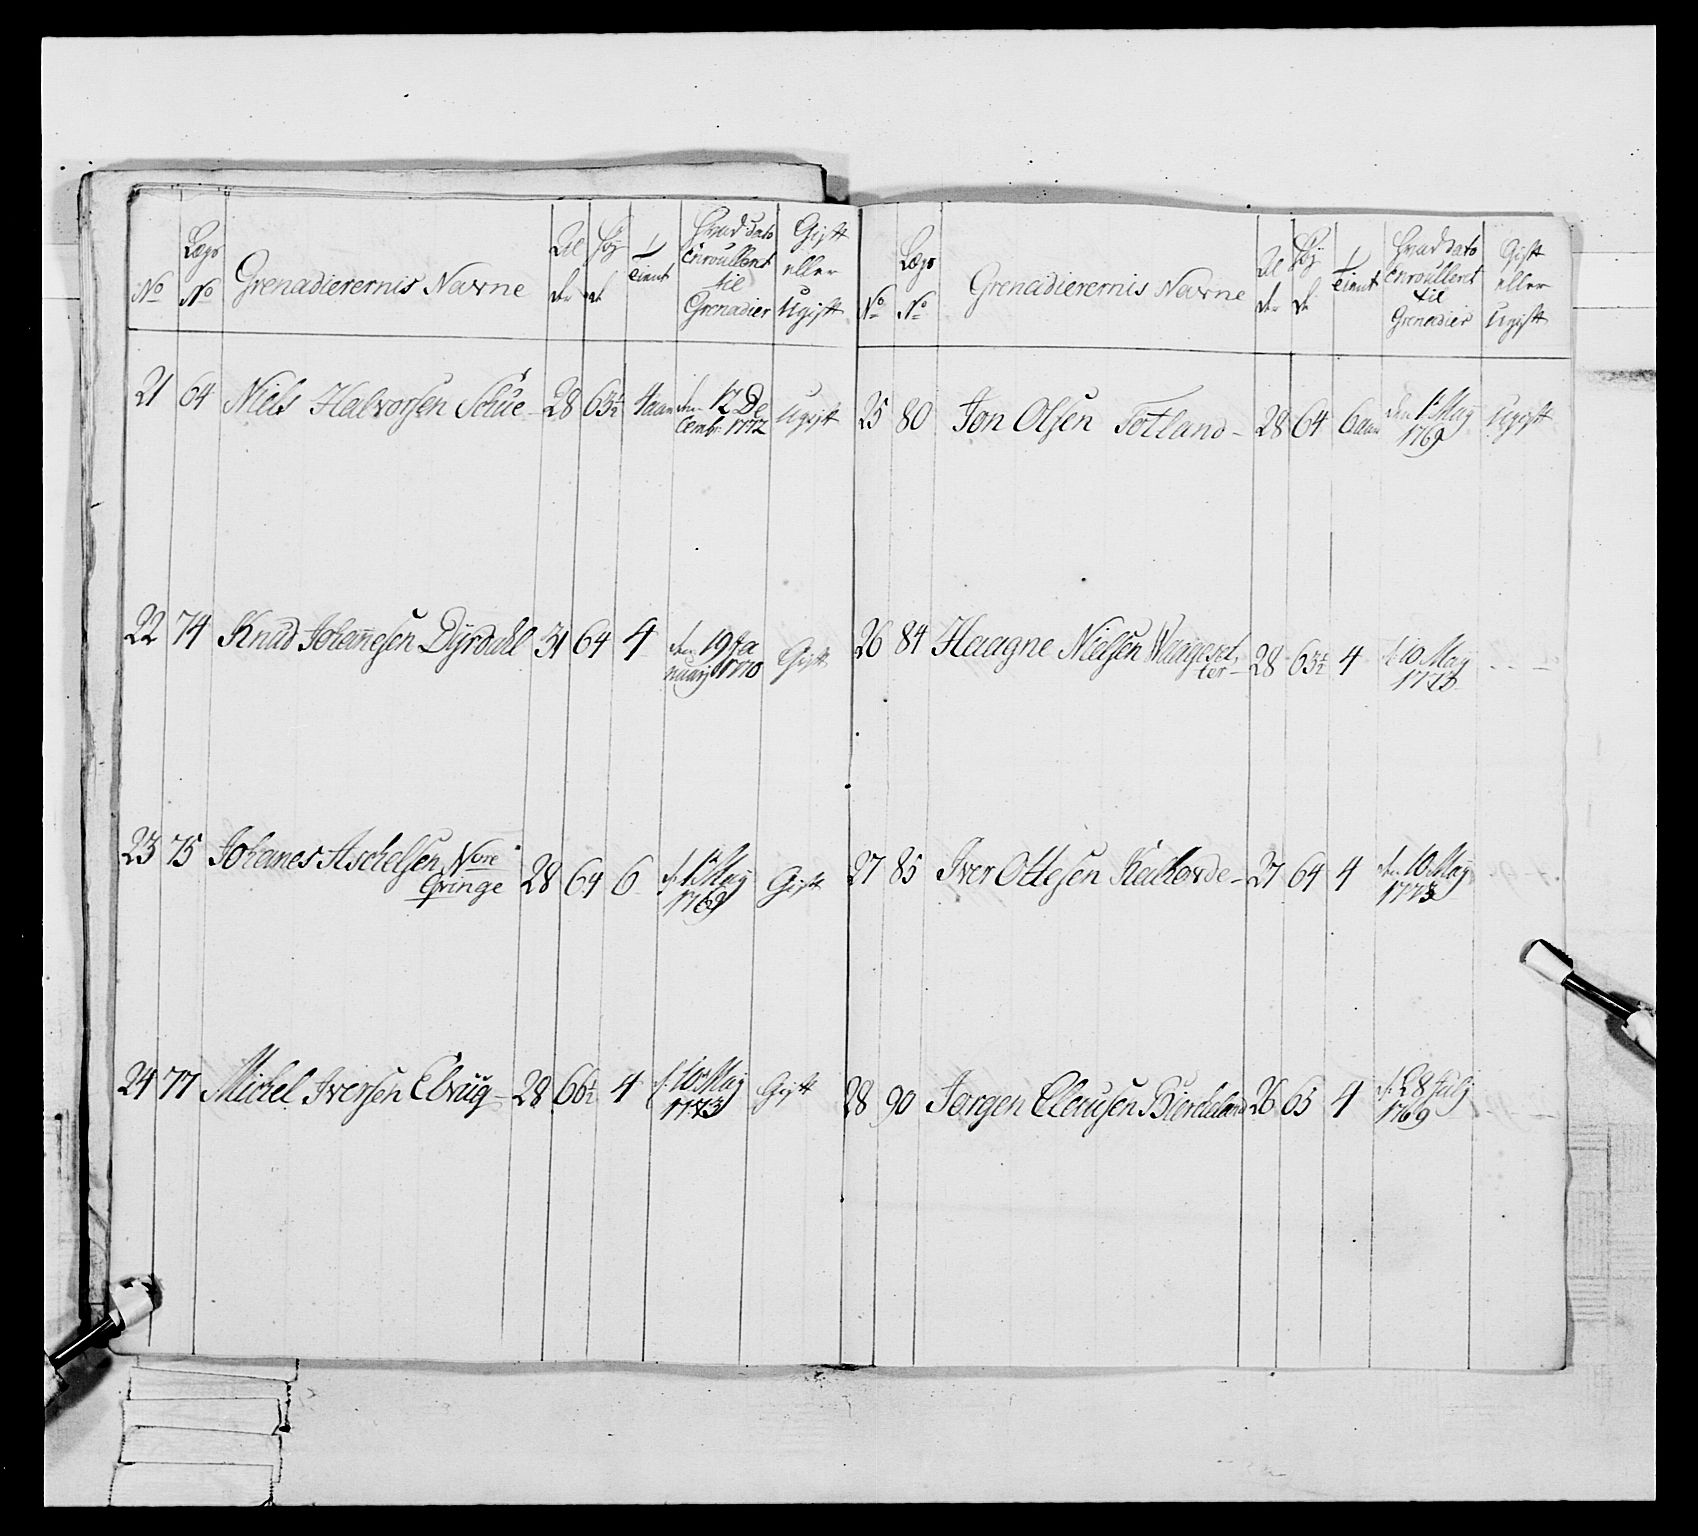 No
Lægs No
Grenadierernis Navne
Al der
Høj de
Tient
Hvad dato Enroullert til Grenadier
Gift eller Ugift
21 64 Niels Halvorsen 28 63½ 4 aar den 17 De
cembr: 1772 Ugift
22 74 Knud Johannesen Dyrdahl 31 64 4 den 19 Ja
nuarij 1770 Gift
23 75 Johanes Aschelsen Nore
Qvinge 28 64 6 d. 1 Maij
1769 Gift
24 77 Michel Iversen Elvüg 28 66½ 4 d. 10 Maij
1773 Gift
No
Lægs No
Grenadierernis Navne
Al der
Høj de
Tient
Hvad dato Enroullert til Grenadier
Gift eller Ugift
25 80 Jon Olsen Totland 28 64 6 aar den 1 Maij
1769 Ugift
26 84 Haagne Nielsen Waageset
ter 28 63½ 4 d. 10 Maij
27 85 Iver Ottesen 27 64 4 den 10 Maij
1773
28 90 Jørgen Clausen Birkeland 26 65 4 d. 28 July
1769